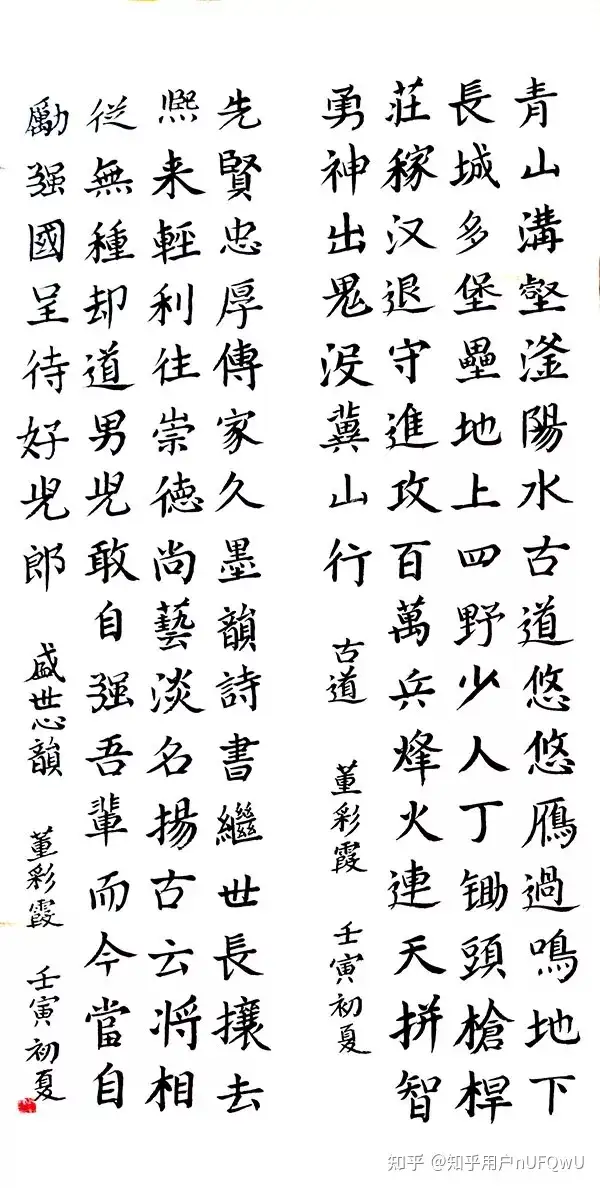 青山溝壑滏陽水古道悠悠鴈過鳴地下
長城多堡壘地上四野少人丁锄頭槍桿
莊稼汉退守進攻百萬兵烽火連天拼智
勇神出鬼没冀山行 古道 董彩霞 壬寅初夏
先賢忠厚傳家久墨韻詩書繼世長攘去
熙来輕利往崇德尚藝淡名揚古云将相
從無種却道男児敢自强吾輩而今當自
勵强國呈待好児郎 盛世心韻 董彩霞 壬寅初夏
知乎 @知乎用户nUFQwU